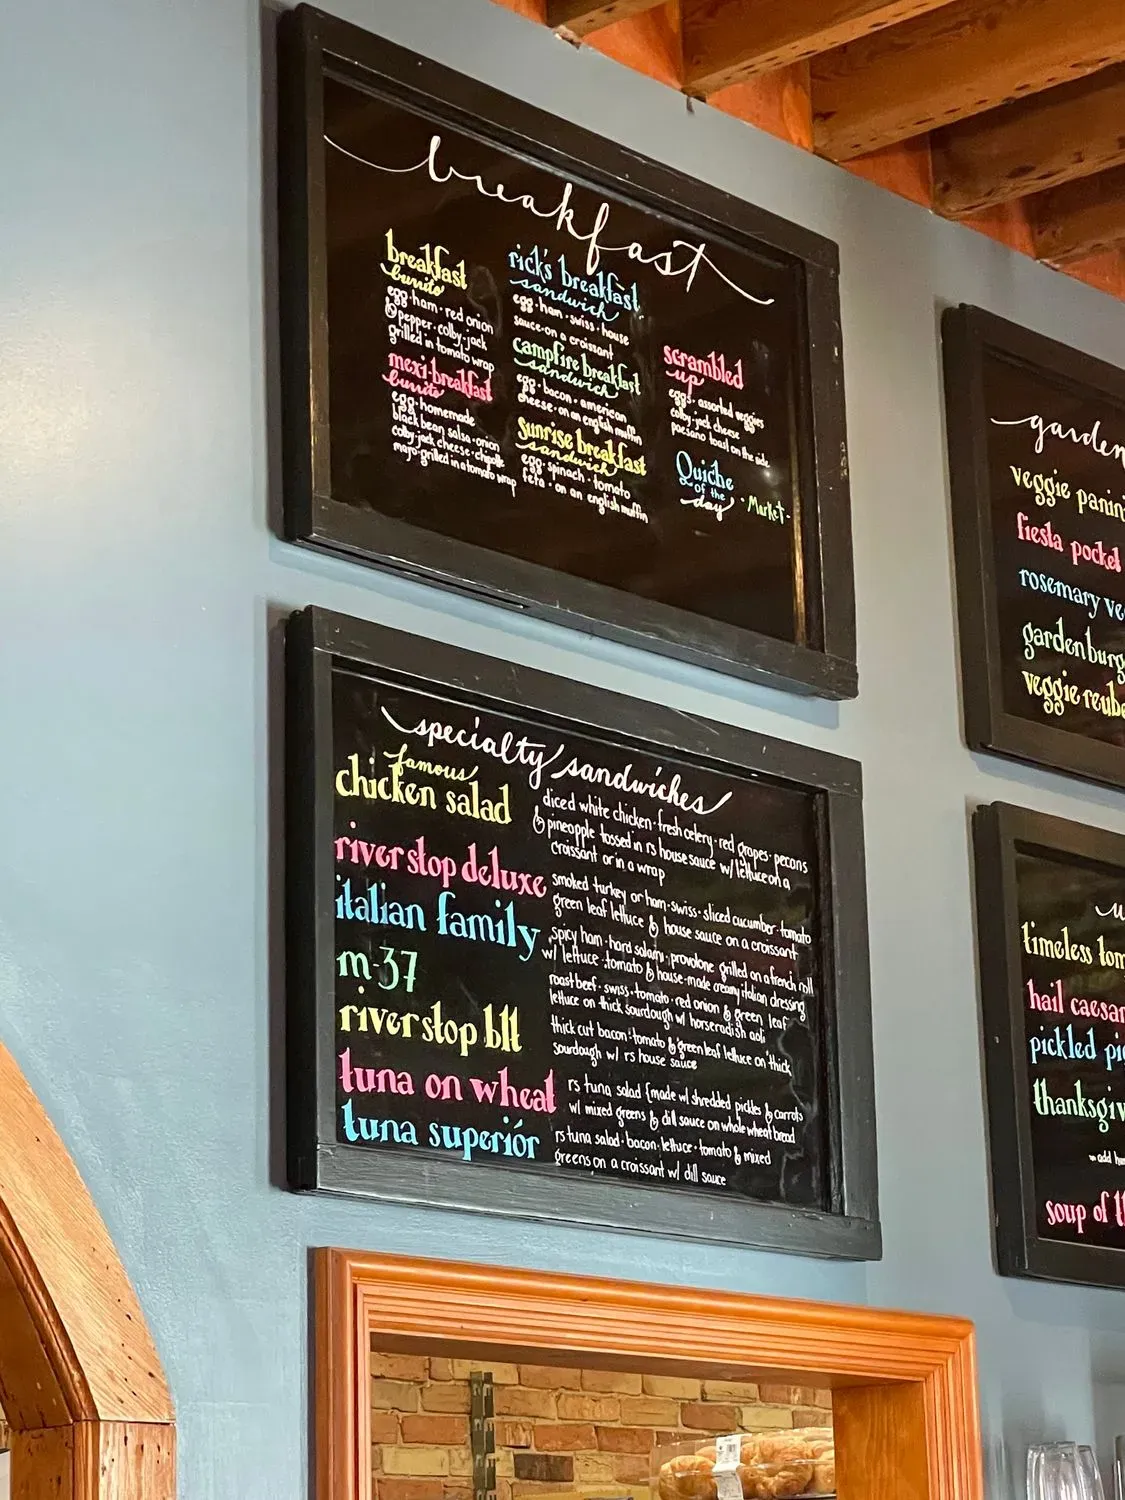 breakfast
breakfast
burrito
egg·ham·red onion
& pepper·colby-jack
grilled in tomato wrap
mexi-breakfast
burrito
egg·homemade
black bean salsa·onion
colby-jack cheese·chipotle
mayo·grilled in a tomato wrap
rick's breakfast
sandwich
egg·ham·swiss·house
sauce·on a croissant
campfire breakfast
sandwich
egg·bacon·american
cheese·on an english muffin
sunrise breakfast
sandwich
egg·spinach·tomato
feta·on an english muffin
scrambled
up
eggs·assorted veggies
colby-jack cheese
paesano toast on the side
Quiche
of the
day
·Market·
specialty sandwiches
famous
chicken salad
diced white chicken·fresh celery·red grapes·pecans
& pineapple tossed in rs house sauce w/ lettuce on a
croissant or in a wrap
river stop deluxe
smoked turkey or ham·swiss·sliced cucumber·tomato
green leaf lettuce & house sauce on a croissant
italian family
spicy ham·hard salami·provolone grilled on a french roll
w/ lettuce·tomato & house-made creamy italian dressing
m-37
roast beef·swiss·tomato·red onion & green leaf
lettuce on thick sourdough w/ horseradish aoli
river stop blt
thick cut bacon·tomato & green leaf lettuce on thick
sourdough w/ rs house sauce
tuna on wheat
rs tuna salad {made w/ shredded pickles & carrots
w/ mixed greens & dill sauce on whole wheat bread
tuna superior
rs tuna salad·bacon·lettuce·tomato & mixed
greens on a croissant w/ dill sauce
garden
veggie panin
fiesta pocket
rosemary ve
gardenburg
veggie reub
timeless tom
hail caesar
pickled pi
thanksgiv
add
soup of t